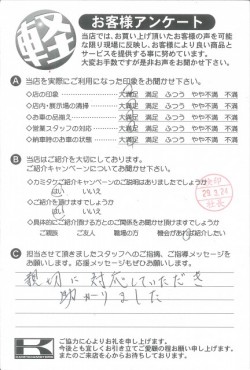 軽
お客様アンケート
当店では、お買い上げ頂いたお客様の声を可能
な限り現場に反映し、お客様により良い商品と
サービスを提供する事に努めています。
大変お手数ですが是非お声をお聞かせ下さい。
A 当店を実際にご利用になった印象をお聞かせ下さい。
◇店の印象 大満足 満足 ふつう やや不満 不満
◇店内・展示場の清掃 大満足 満足 ふつう やや不満 不満
◇お車の品揃え 大満足 満足 ふつう やや不満 不満
◇営業スタッフの対応 大満足 満足 ふつう やや不満 不満
◇納車時のお車の状態 大満足 満足 ふつう やや不満 不満
B 当店はご紹介を大切にしております。
ご紹介キャンペーンについてお聞かせ下さい
◇カミタケご紹介キャンペーンのご説明はありましたでしょうか
はい いいえ
◇ご紹介を頂けますでしょうか
はい いいえ
◇具体的にご紹介頂ける方とのご関係をお聞かせ頂けますでしょうか
ご親族 ご友人 職場の方 機会があれば紹介したい
C 担当させて頂きましたスタッフへのご指摘、ご指導メッセージを
お願いします。応援メッセージもぜひお願いします。
親切に対応していただき
助かりました
K
ご協力に心よりお礼を申し上げます。
今後とも宜しくお引き立てご愛顧の程お願い申し上げます。
またのご来店を心からお待ちしております。